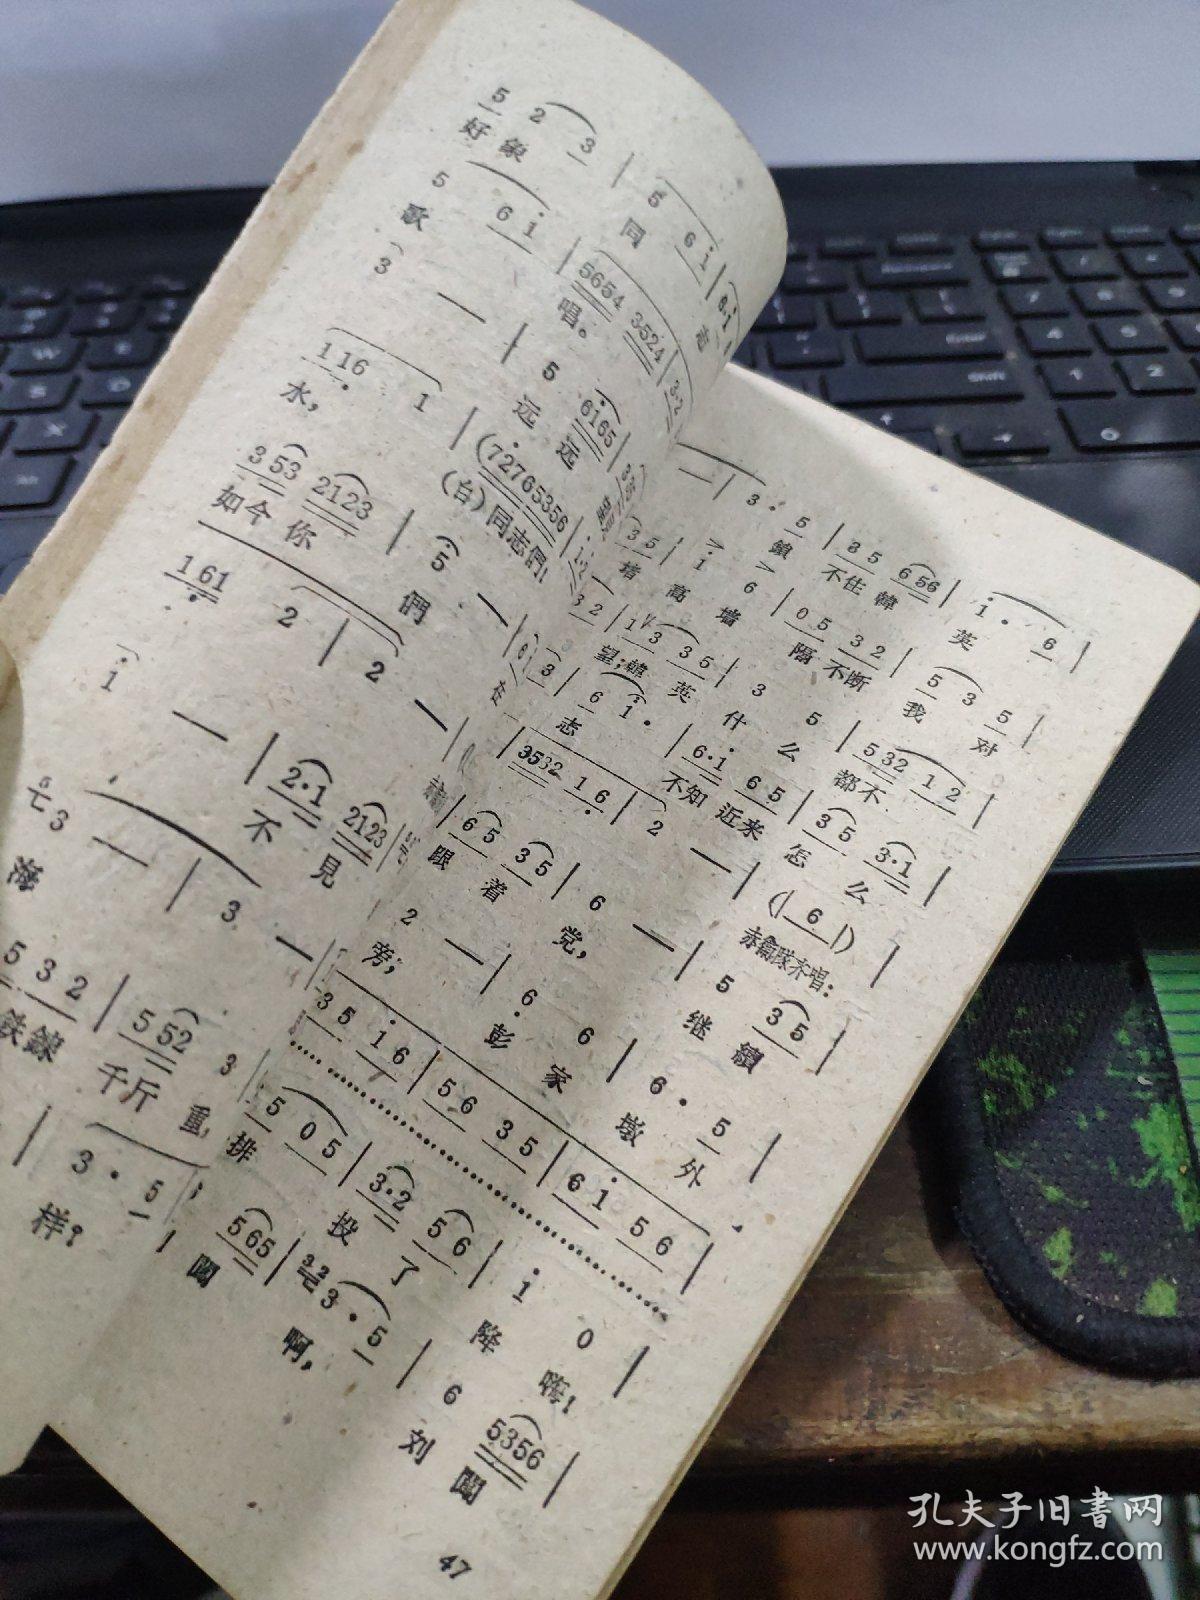 5 2 3 | 5 6 i | 6·i
好象 同 志
5 6 i | 5654 3524 | 3·2
歌 唱。
3 — | 5 6165
远远
116 1 | (72765356 | 1·2
水, (白)同志們!
353 2123 | 5 —
如今你 們
161 2 | 2 —
i — | 2·1 2123
不見
3 — | 3 —
海
532 | 552 3
鉄鎍 千斤重,
3·5
样?
— | 3·5 | 35 656 | i·6 |
鎖 不住韓 英
35 | i 6 | 05 32 | 5 3 5 |
堵 高 墙 隔不断 我 对
32 | 13 35 | 3 5 | 532 12 |
望;韓英 什 么 都不
3 | 6 i· | 6·i 65 | 35 3·1 |
志 不知近来 怎么
3532 16 | 2 — | (| 6 |) |
赤衞隊齐唱:
65 35 | 6 — | 5 35 |
跟着 党, 继續
2 — | 6 6 | 6·5 |
旁, 彭家 墩外
35 i6 | 56 35 | 6i 56 |
5 05 | 3·2 56 | i 0 |
排 投了 降 嗨!
565 | 3·5 | 6 5356 |
闖 啊, 刘闖
47
孔夫子旧书网
www.kongfz.com